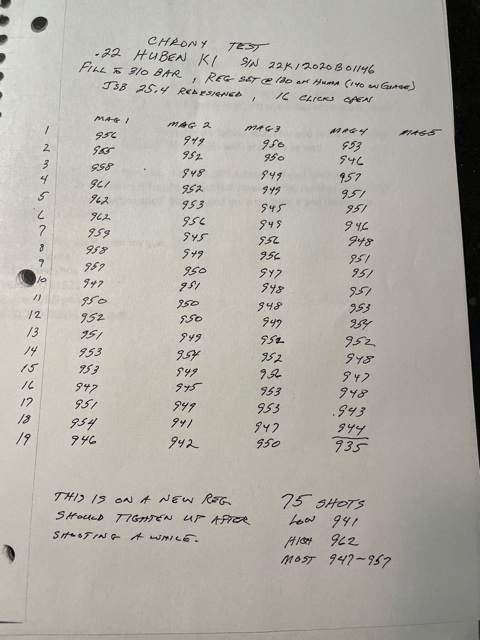 CHRONY TEST
.22 HUBEN K1 S/N 22K12020B01146
FILL TO 310 BAR, REG SET @ 130 ON HUMA (140 ON GUAGE)
JSB 25.4 REDESIGNED, 16 CLICKS OPEN
MAG 1 MAG 2 MAG 3 MAG 4 MAG 5
1 956 949 950 953
2 955 952 950 946
3 958 948 949 957
4 961 952 949 951
5 962 953 945 951
6 962 956 949 946
7 959 945 956 948
8 958 949 956 951
9 957 950 947 951
10 947 951 948 951
11 950 950 948 953
12 952 950 949 954
13 951 949 952 952
14 953 954 952 948
15 953 949 956 947
16 947 945 953 948
17 951 949 953 943
18 954 941 947 944
19 946 942 950 935
THIS IS ON A NEW REG
SHOULD TIGHTEN UP AFTER
SHOOTING A WHILE.
75 SHOTS
LOW 941
HIGH 962
MOST 947-957